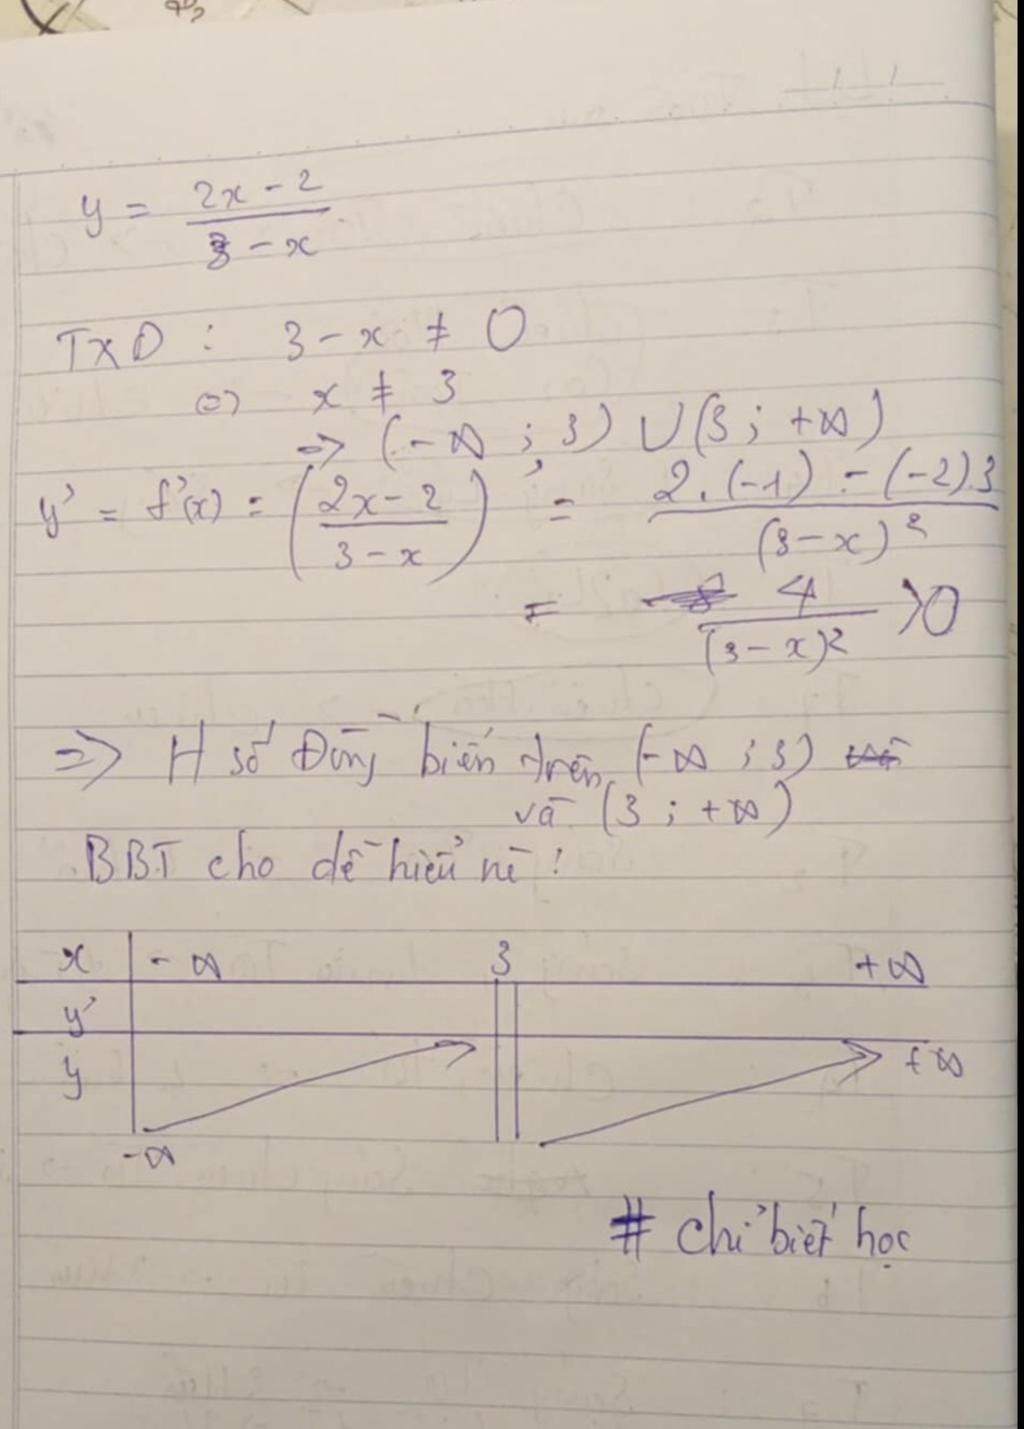 y = (2x - 2)/(3 - x)
TXD : 3 - x ≠ 0
⇔ x ≠ 3
=> (-∞ ; 3) ∪ (3 ; +∞)
y' = f'(x) = ((2x - 2)/(3 - x))' = (2.(-1) - (-2).3)/(3 - x)²
= 4/(3 - x)² > 0
=> H số Đồng biến trên (-∞ ; 3)
và (3 ; +∞)
BBT cho dễ hiểu nè !
x -∞ 3 +∞
y'
y +∞
-∞
# chỉ biết học